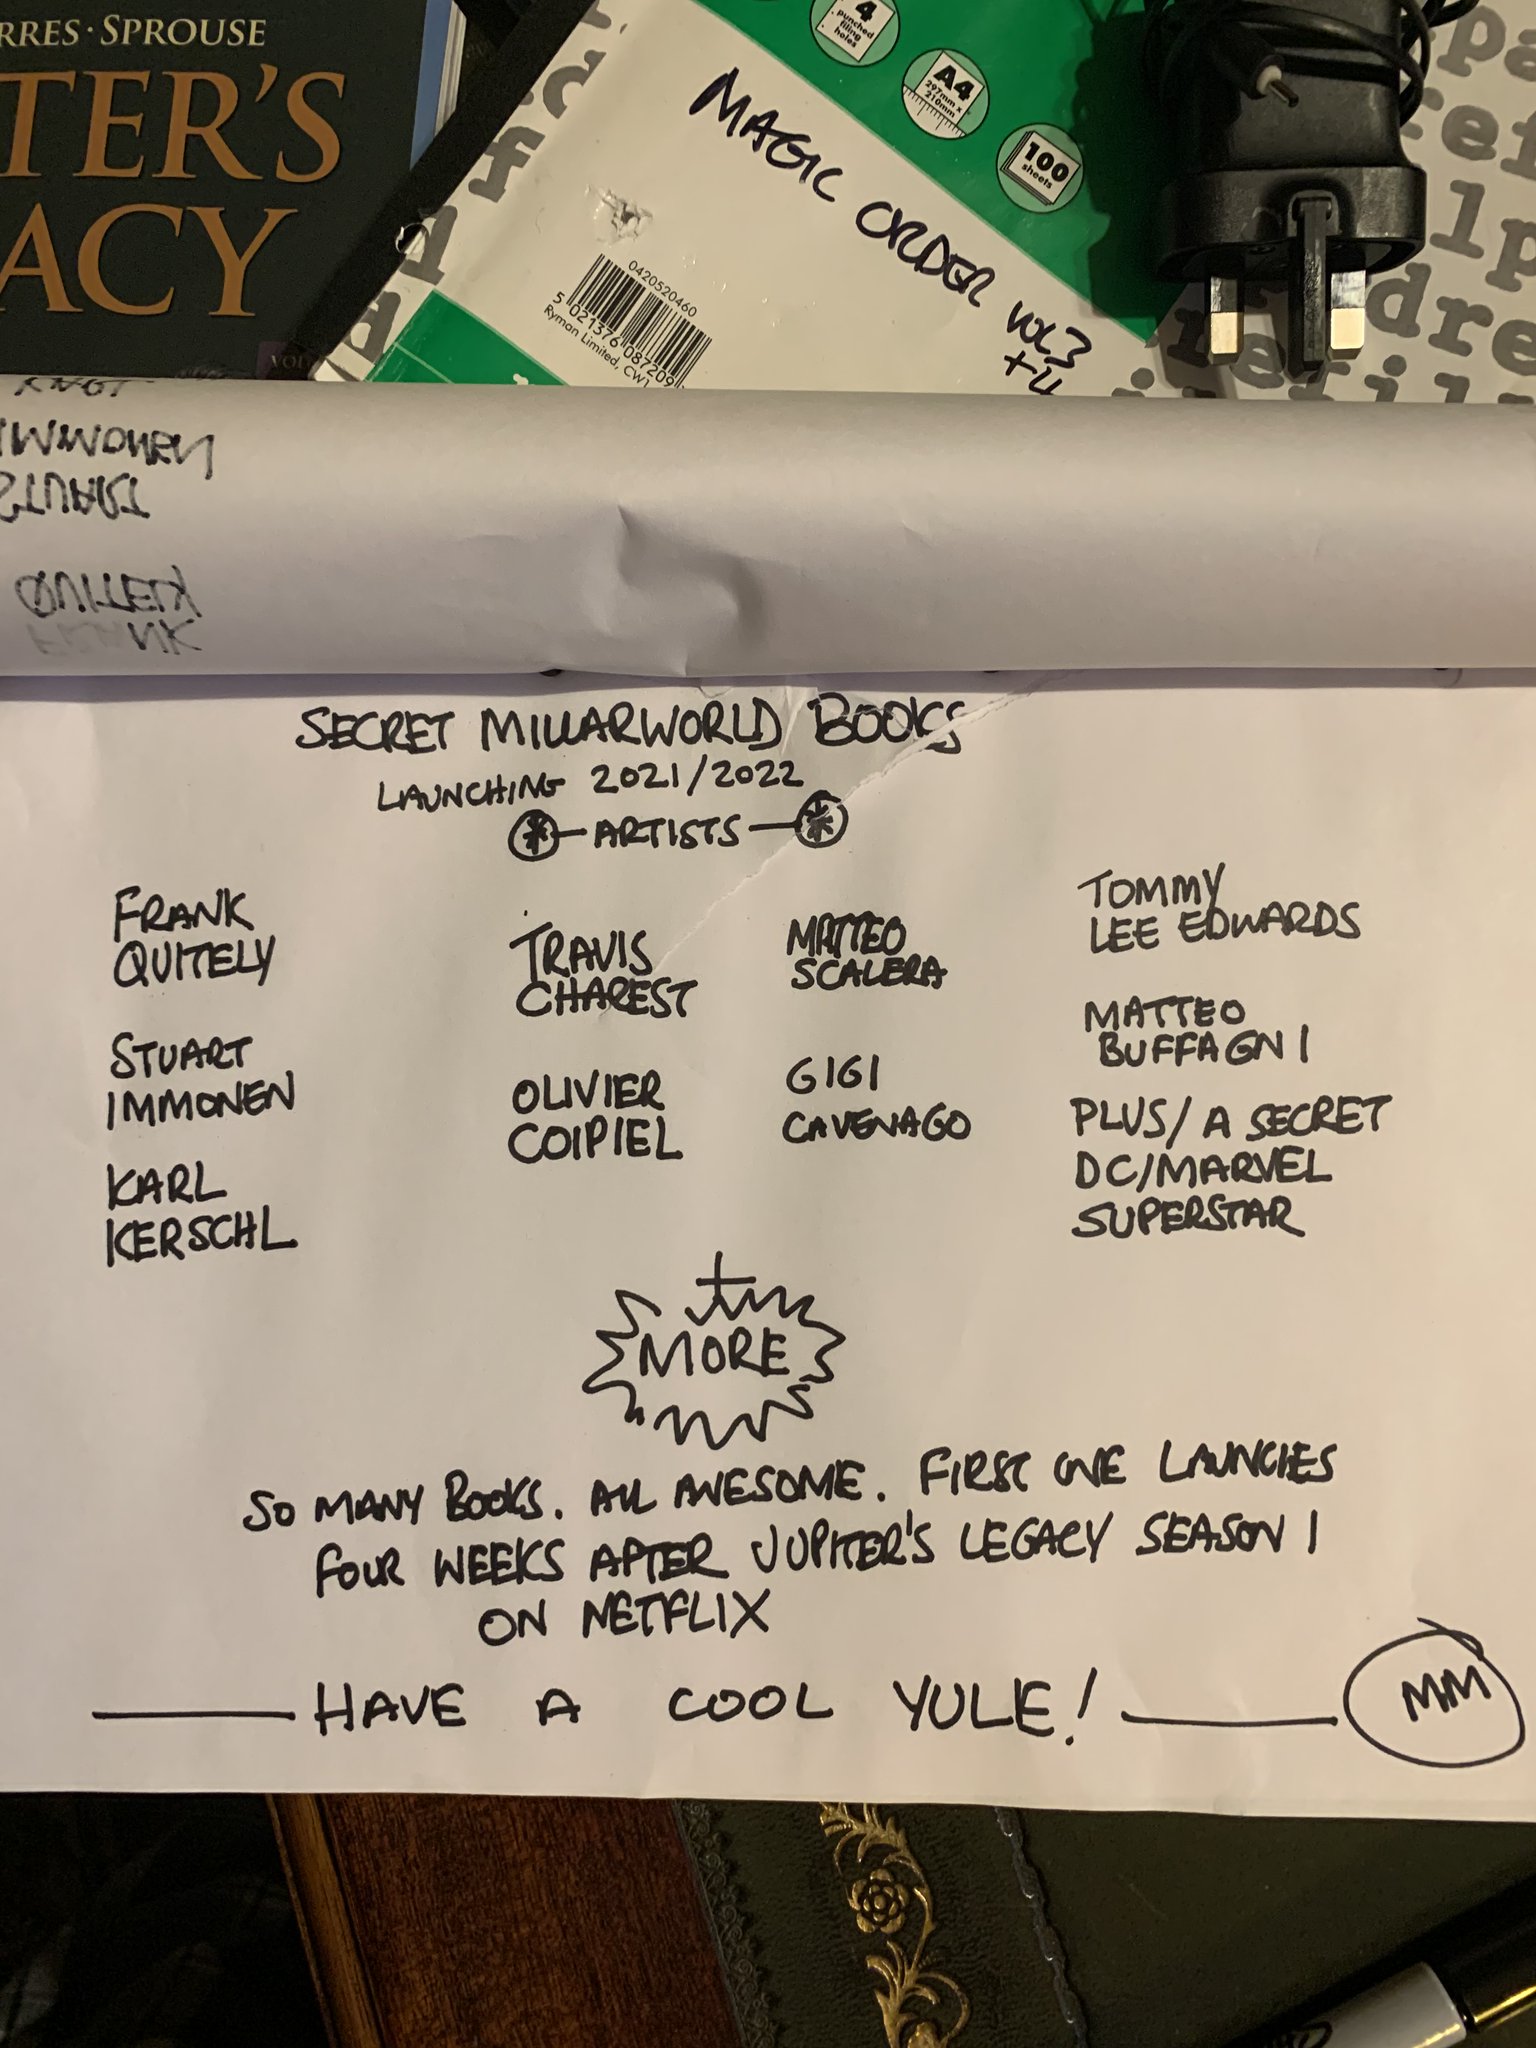 RRES · SPROUSE
TER'S
ACY
VOL
4
punched
filing
holes
A4
297mm x
210mm
100
sheets
MAGIC ORDER VOL 3
+ 4
0420520460
5 021376 087209
Ryman Limited, CW1
IMMONEN
STUART
QUITELY
FRANK
SECRET MILLARWORLD BOOKS
LAUNCHING 2021/2022
* — ARTISTS — *
FRANK
QUITELY
STUART
IMMONEN
KARL
KERSCHL
TRAVIS
CHAREST
OLIVIER
COIPIEL
MATTEO
SCALERA
GIGI
CAVENAGO
TOMMY
LEE EDWARDS
MATTEO
BUFFAGNI
PLUS/ A SECRET
DC/MARVEL
SUPERSTAR
+
MORE
SO MANY BOOKS. ALL AWESOME. FIRST ONE LAUNCHES
FOUR WEEKS AFTER JUPITER'S LEGACY SEASON 1
ON NETFLIX
HAVE A COOL YULE!
MM